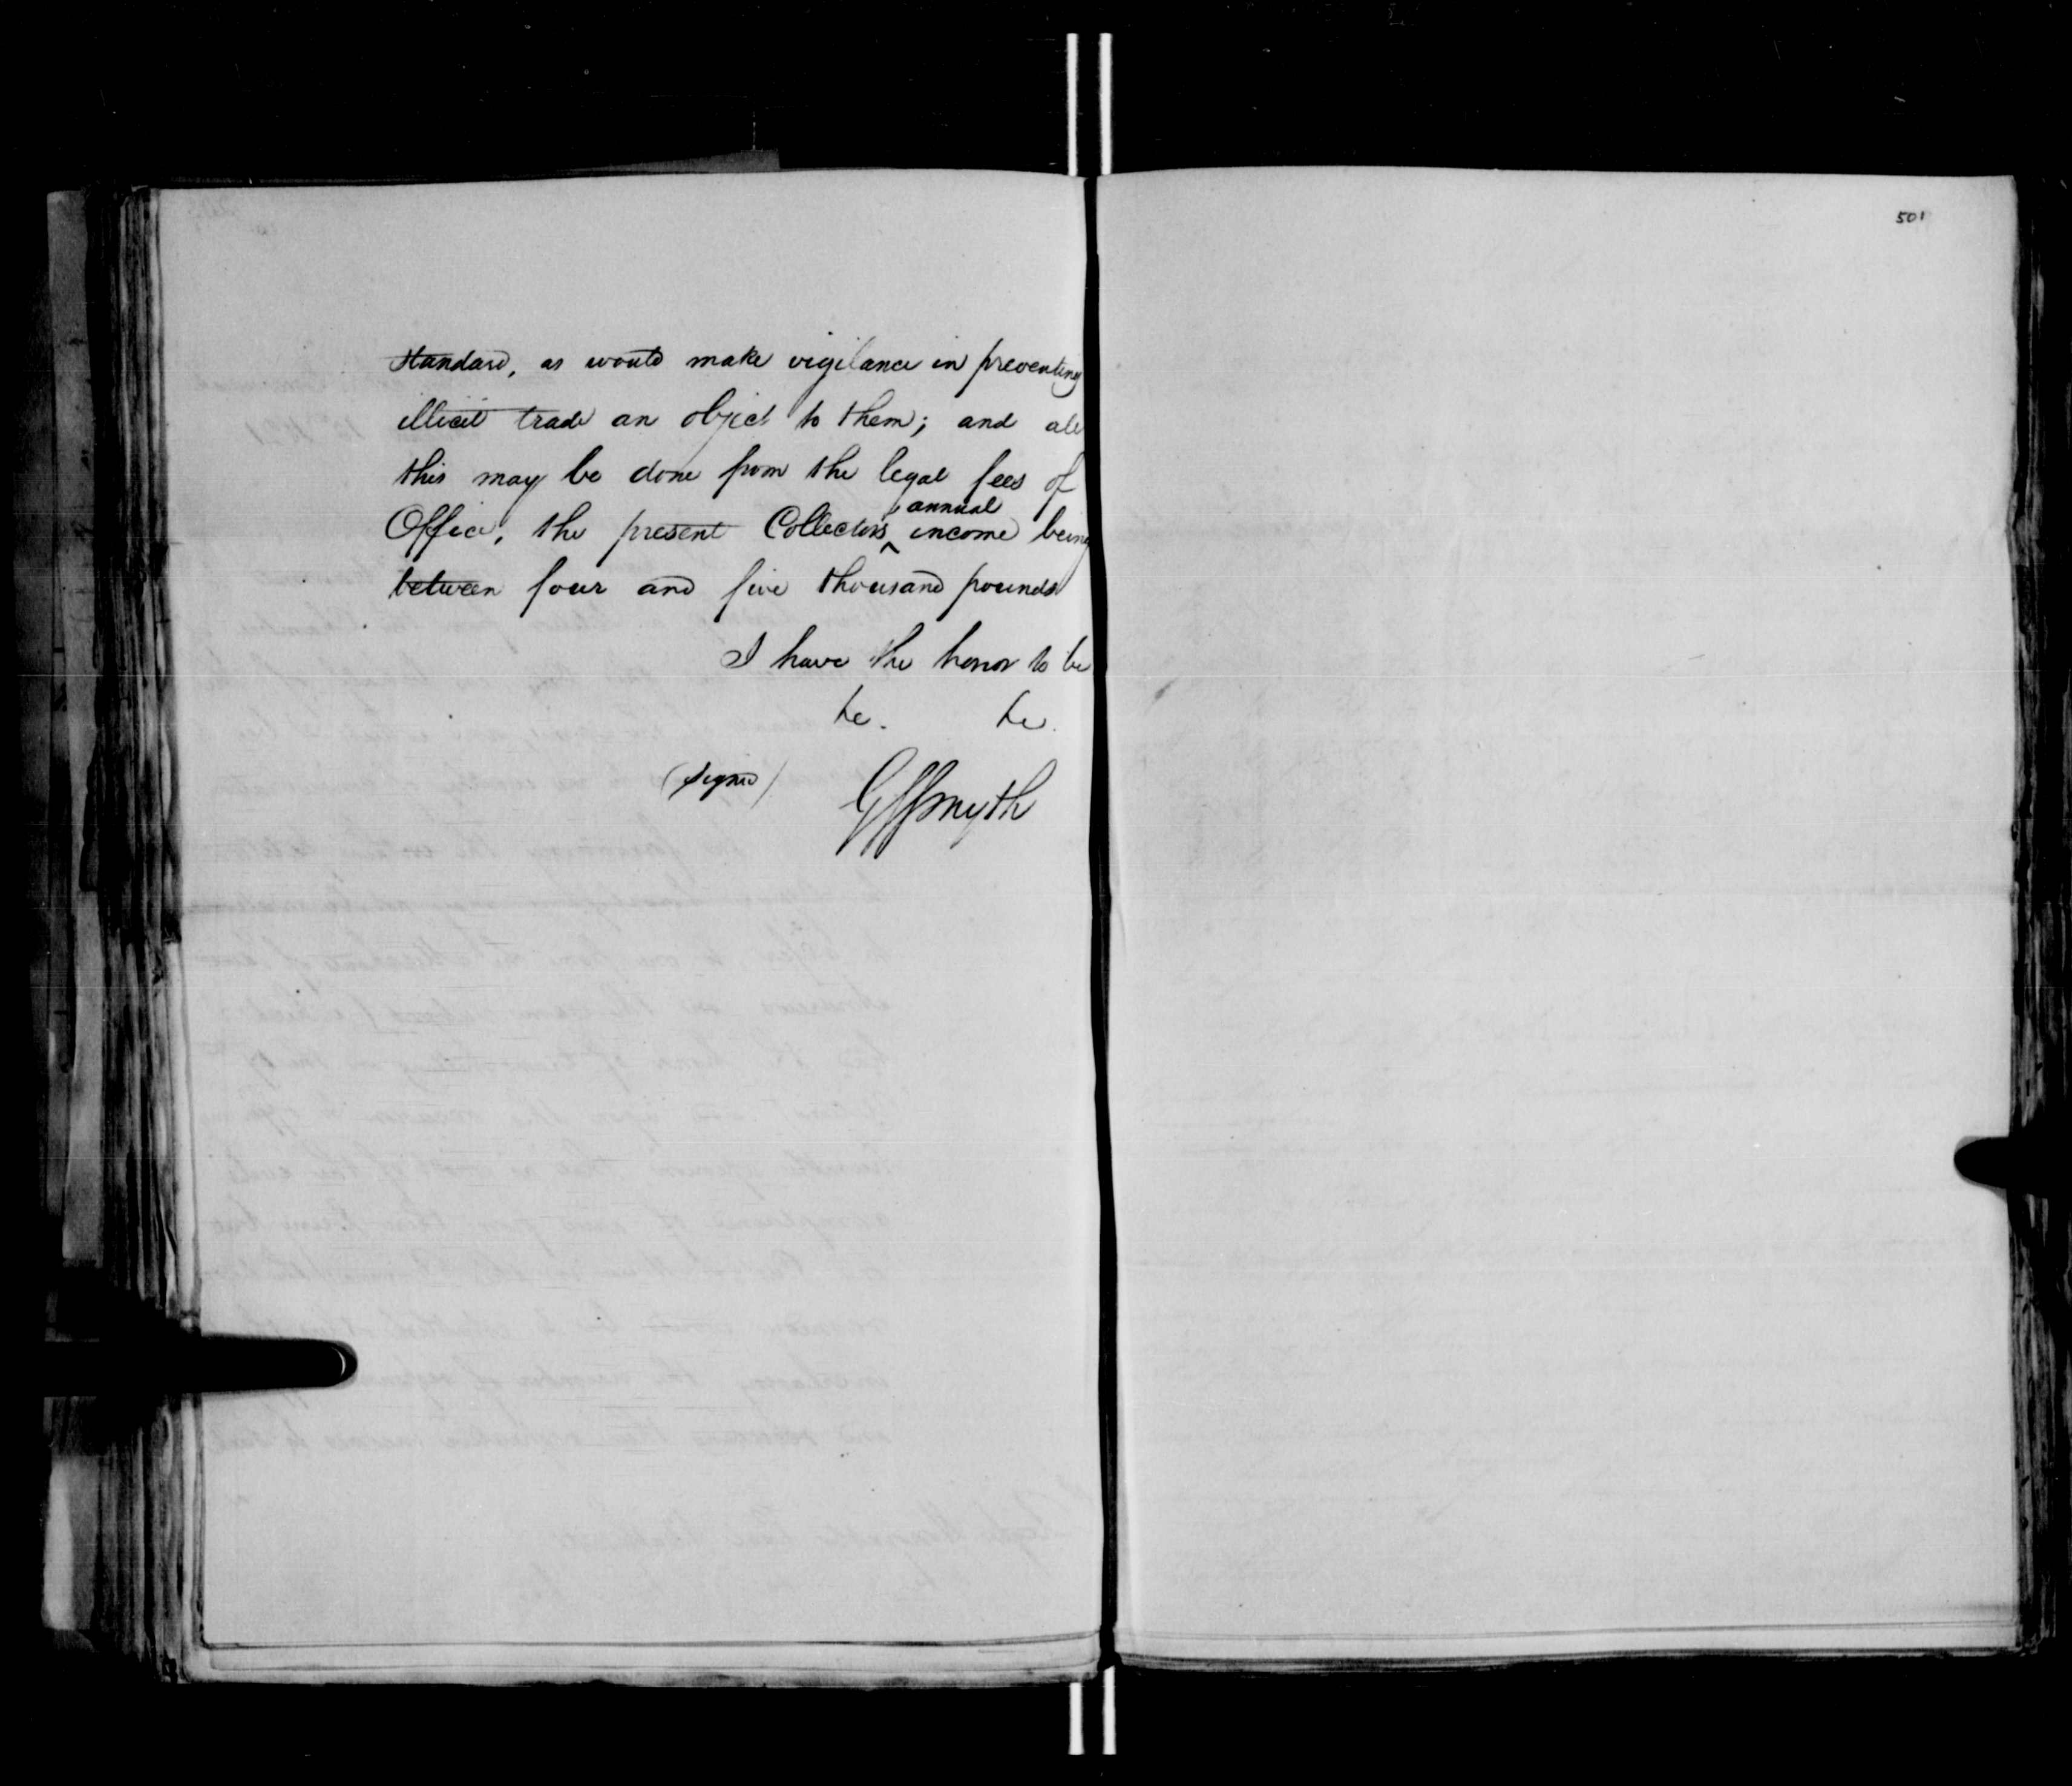 standard, as would make vigilance in preventing
illicit trade an object to them; and all
this may be done from the legal fees of
Office, the present Collectors ^ annual income being
between four and five thousand pounds
I have the honor to be
&c. &c.
(Signed) G S Smyth
501